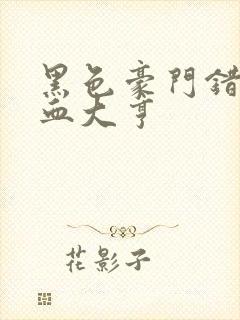 黑色豪門錯
血大亨
花影子